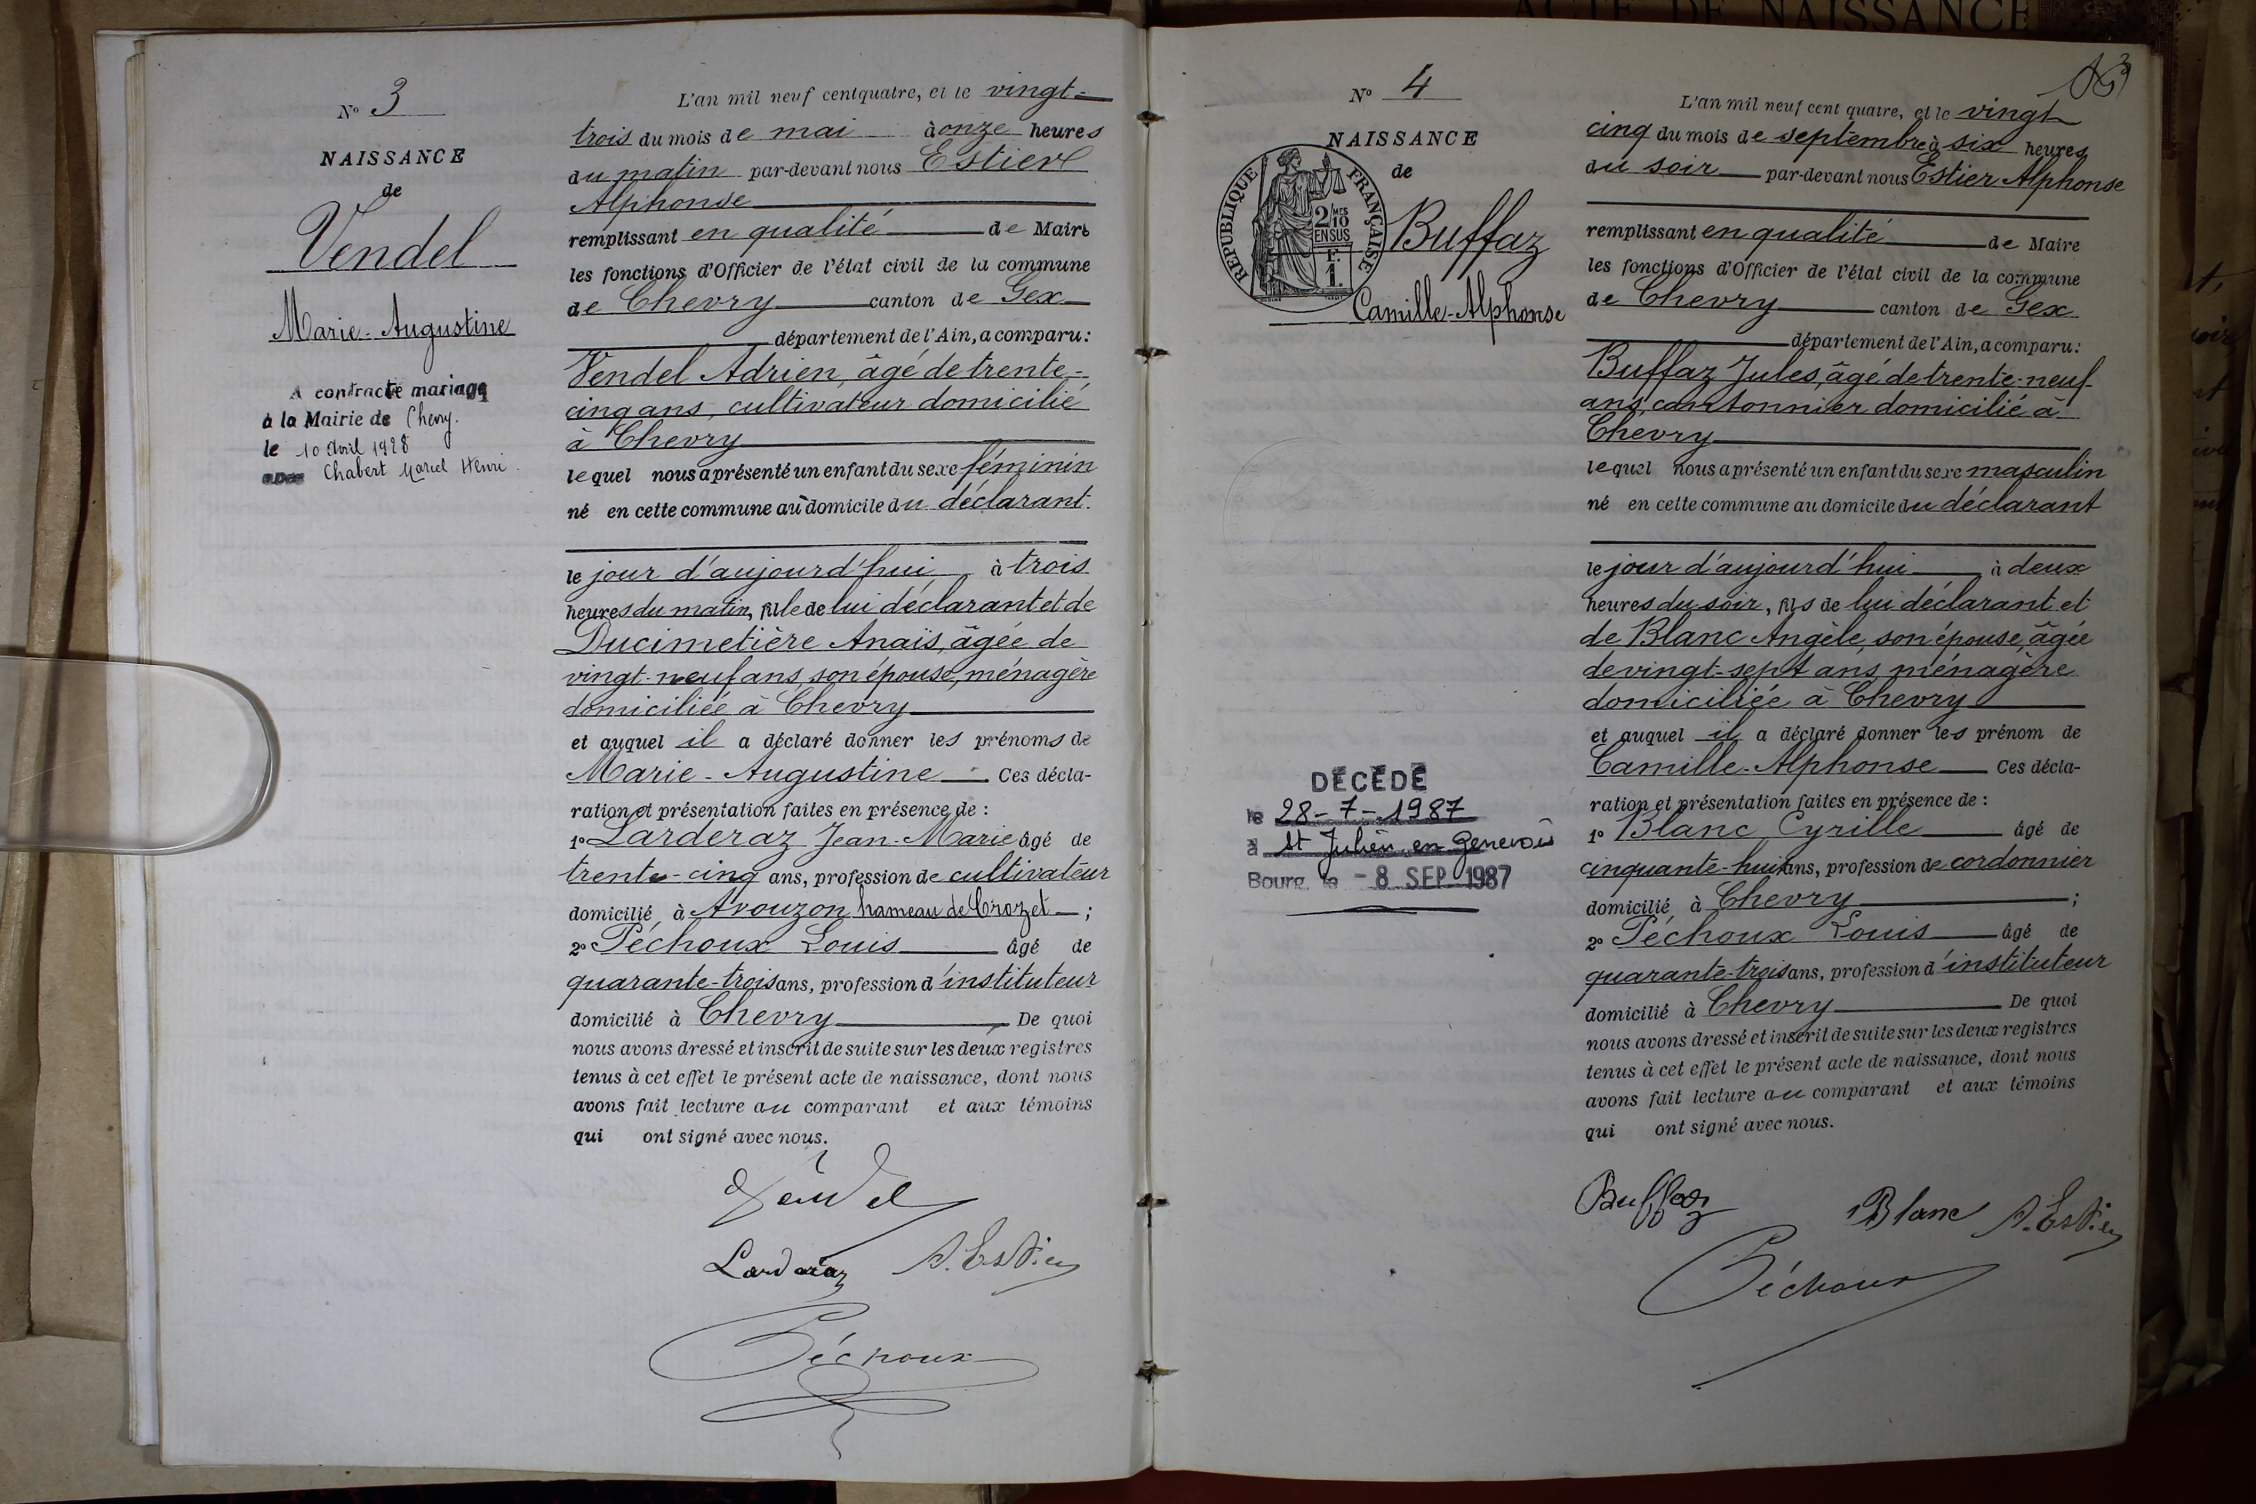 ACTE DE NAISSANCE
N° 3
NAISSANCE
de
Vendel
Marie-Augustine
A contracté mariage
à la Mairie de Chevry.
le 10 Avril 1928
avec Chabert Marcel Henri.
L'an mil neuf cent quatre, et le vingt-
trois du mois de mai à onze heures
du matin par-devant nous Estier
Alphonse
remplissant en qualité de Maire
les fonctions d'Officier de l'état civil de la commune
de Chevry canton de Gex
département de l'Ain, a comparu:
Vendel Adrien, âgé de trente-
cinq ans, cultivateur domicilié
à Chevry
lequel nous a présenté un enfant du sexe féminin
né en cette commune au domicile du déclarant.
le jour d'aujourd'hui à trois
heures du matin, fille de lui déclarant et de
Ducimetière Anaïs, âgée de
vingt-neuf ans, son épouse, ménagère
domiciliée à Chevry
et auquel il a déclaré donner les prénoms de
Marie-Augustine Ces décla-
ration et présentation faites en présence de :
1° Larderaz Jean-Marie âgé de
trente-cinq ans, profession de cultivateur
domicilié à Avouzon hameau de Crozet ;
2° Péchoux Louis âgé de
quarante-trois ans, profession d'instituteur
domicilié à Chevry De quoi
nous avons dressé et inscrit de suite sur les deux registres
tenus à cet effet le présent acte de naissance, dont nous
avons fait lecture au comparant et aux témoins
qui ont signé avec nous.
Vendel
Larderaz A. Estier
Péchoux
N° 4
NAISSANCE
de
Buffaz
Camille-Alphonse
REPUBLIQUE FRANÇAISE
2/10 MES
EN SUS
F.
1
DÉCÉDÉ
le 28-7-1987
à St Julien en Genevois
Bourg, le -8 SEP 1987
L'an mil neuf cent quatre, et le vingt
cinq du mois de septembre à six heures
du soir par-devant nous Estier Alphonse
remplissant en qualité de Maire
les fonctions d'Officier de l'état civil de la commune
de Chevry canton de Gex
département de l'Ain, a comparu:
Buffaz Jules, âgé de trente-neuf
ans, cantonnier domicilié à
Chevry
lequel nous a présenté un enfant du sexe masculin
né en cette commune au domicile du déclarant
le jour d'aujourd'hui à deux
heures du soir, fils de lui déclarant et
de Blanc Angèle, son épouse, âgée
de vingt-sept ans, ménagère
domiciliée à Chevry
et auquel il a déclaré donner les prénom de
Camille-Alphonse Ces décla-
ration et présentation faites en présence de :
1° Blanc Cyrille âgé de
cinquante-huit ans, profession de cordonnier
domicilié à Chevry ;
2° Péchoux Louis âgé de
quarante-trois ans, profession d'instituteur
domicilié à Chevry De quoi
nous avons dressé et inscrit de suite sur les deux registres
tenus à cet effet le présent acte de naissance, dont nous
avons fait lecture au comparant et aux témoins
qui ont signé avec nous.
Buffaz Blanc A. Estier
Péchoux